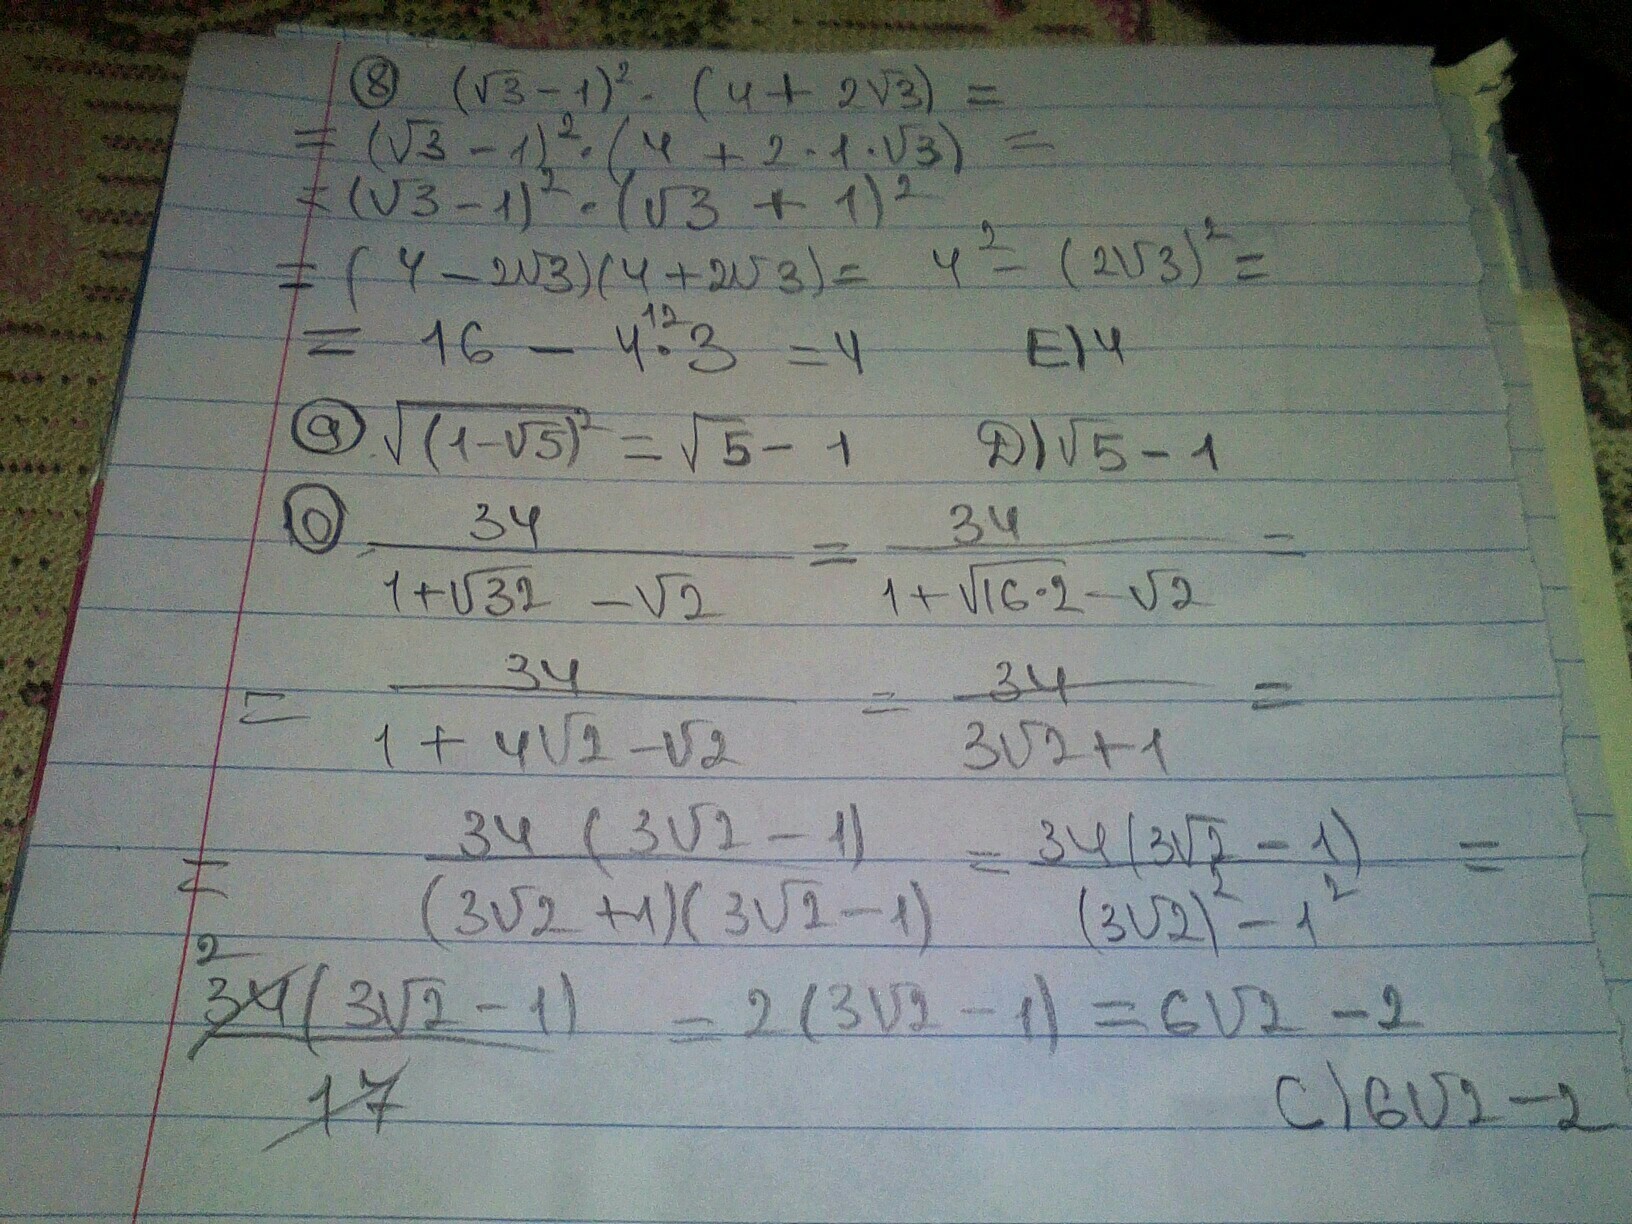 ⑧ (√3-1)²·(4+2√3)=
=(√3-1)²·(4+2·1·√3)=
=(√3-1)²·(√3+1)²
=(4-2√3)(4+2√3)= 4²-(2√3)²=
=16-4·3¹²=4 E)4
⑨ √(1-√5)²=√5-1 D)√5-1
⑩ 34/(1+√32-√2)=34/(1+√16·2-√2)=
=34/(1+4√2-√2)=34/(3√2+1)=
=34(3√2-1)/(3√2+1)(3√2-1)=34(3√2-1)/(3√2)²-1²=
2
34(3√2-1)/17=2(3√2-1)=6√2-2
C)6√2-2